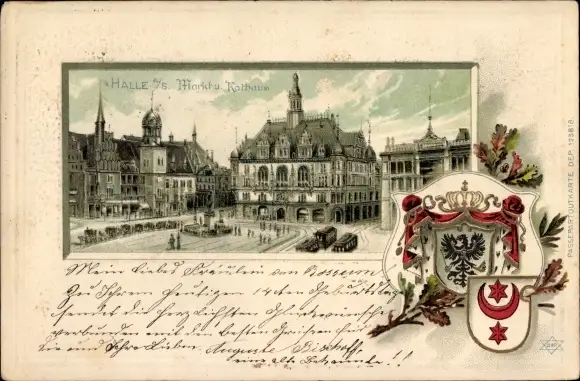 HALLE a/S. Markt u. Rathaus
Mein liebes Fräulein von Bossum
Zu Ihrem heutigen 14ten Geburtstag
sendet die herzlichsten Glückwünsche
verbunden mit den besten Grüssen für
Sie und Ihre Lieben, Auguste Bischoff,
eine alte Bekannte!!
PASSEPARTOUTKARTE DEP. 125818